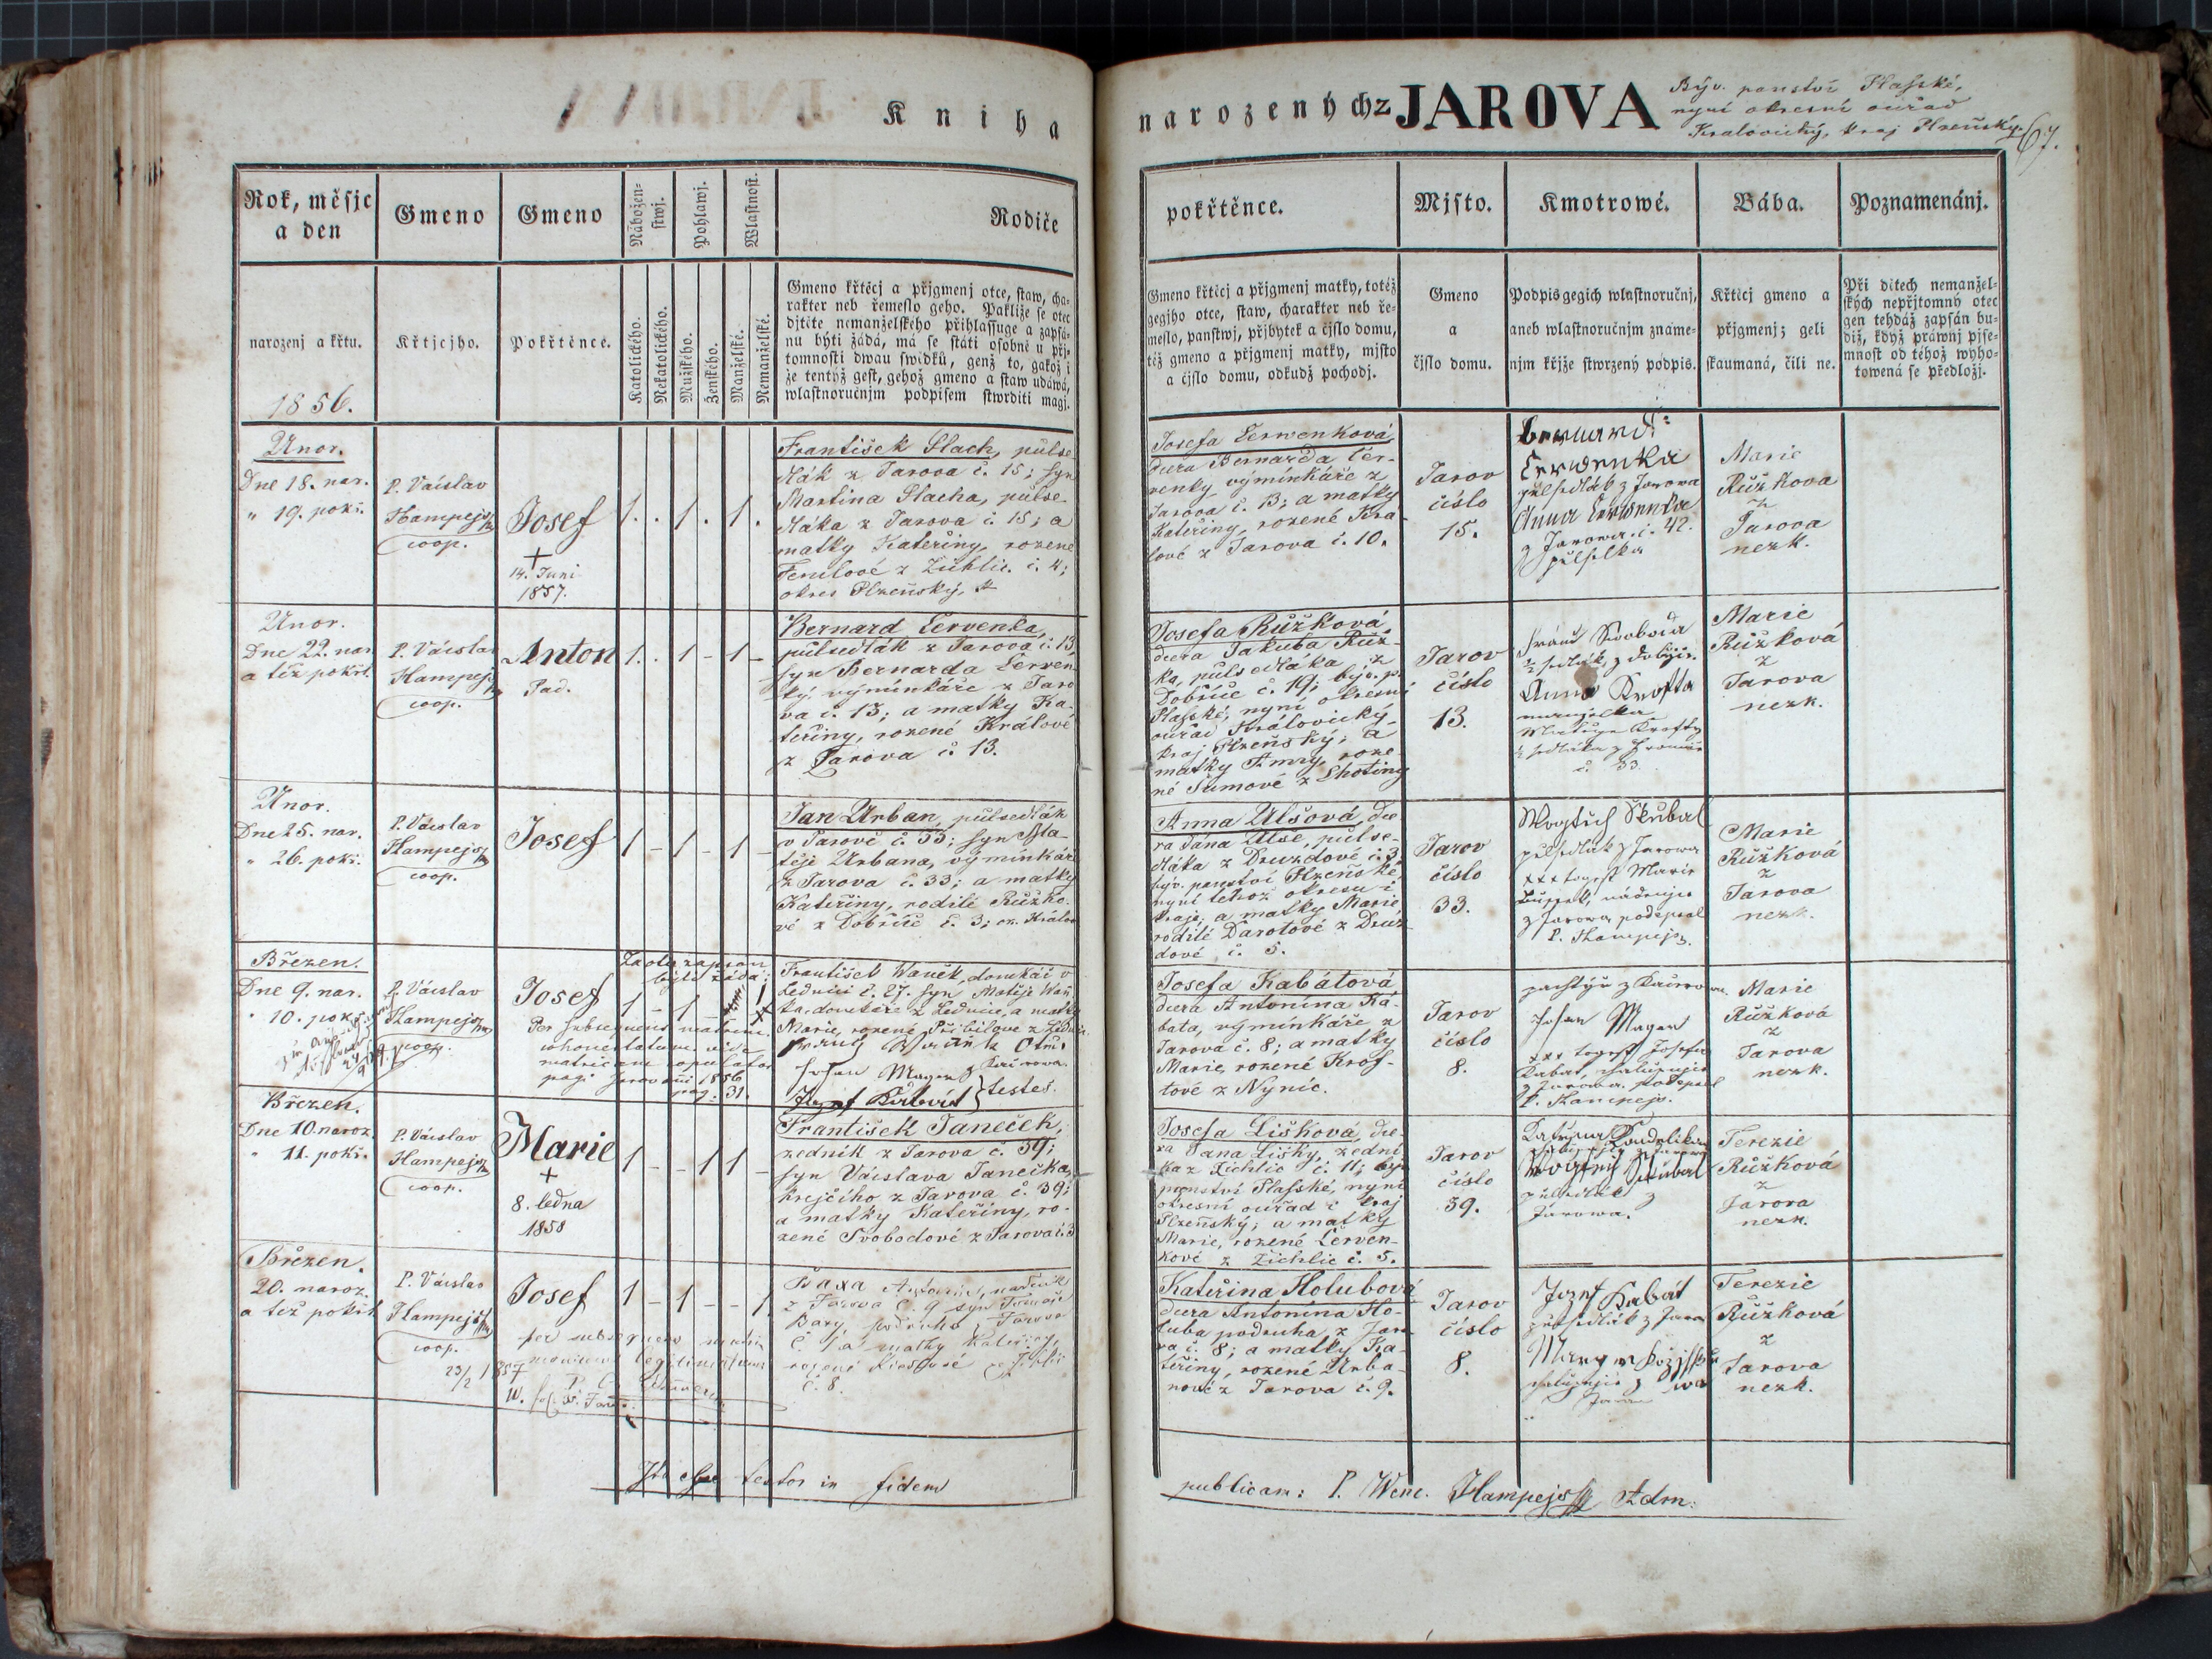 Kniha
narozených z JAROVA
Býv. panství Plasské,
nyní okresní ouřad
Kralovický, kraj Plzeňský.
67.
Rok, měsjc
a den
Gmeno
Gmeno
Nábožen-
stwj.
Pohlawj.
Wlastnost.
Rodiče
narozenj a křtu.
1856.
Křtjcjho.
Pokřtěnce.
Katolického.
Nekatolického.
Mužského.
Ženského.
Manželské.
Nemanželské.
Gmeno křtěcj a přjgmenj otce, staw, cha-
rakter neb řemeslo geho. Pakliže se otec
djtěte nemanželského přihlassuge a zapsá-
nu býti žádá, má se státi osobně u přj-
tomnosti dwau swědků, genž to, gakož i
že tentýž gest, gehož gmeno a staw udáwá,
wlastnoručnjm podpisem stwrditi magj.
pokřtěnce.
Mjsto.
Kmotrowé.
Bába.
Poznamenánj.
Gmeno křtěcj a přjgmenj matky, totéž
gegjho otce, staw, charakter neb ře-
meslo, panstwj, přjbytek a čjslo domu,
též gmeno a přjgmenj matky, mjsto
a čjslo domu, odkudž pochodj.
Gmeno
a
čjslo domu.
Podpis gegich wlastnoručnj,
aneb wlastnoručnjm zname-
njm křjže stwrzený podpis.
Křtěcj gmeno a
přjgmenj; geli
skaumaná, čili ne.
Při djtech nemanžel-
ských nepřjtomný otec
gen tehdáž zapsán bu-
diž, když práwnj pjse-
mnost od téhož wyho-
towená se předložj.
Unor.
Dne 18. nar.
" 19. pokř.
P. Václav
Hampejs
coop.
Josef
+
14. Juni
1857.
1. . 1 . 1 .
František Slach, půlse
dlák z Jarova č. 15; syn
Martina Slacha, půlse
dláka z Jarova č. 15; a
matky Kateřiny, rozené
z Žichlic. č. 4;
okres Plzeňský,
Josefa Červenková,
dcera Bernarda Čer-
venky výminkáře z
Jarova č. 13; a matky
Kateřiny, rozené Krá
lové z Jarova č. 10.
Jarov
číslo
15.
Bernard
Czerwenka
půlsedlák z Jarowa
Anna Czerwenka
z Jarowa č. 42.
Marie
Růžkova
z
Jarova
nezk.
Unor.
Dne 22. nar.
a též pokřt.
P. Václav
Hampejs
coop.
Anton
Pad.
1. . 1 - 1 -
Bernard Červenka,
půlsedlák z Jarova č. 13,
syn Bernarda Červen
ky výminkáře z Jaro
va č. 13; a matky Ka-
teřiny, rozené Králové
z Jarova č. 13.
Josefa Růžková
dcera Jakuba Růž-
ka, půlsedláka z
Dobříče č. 19; býv. p.
Plasské, nyní okresní
ouřad Královický,
kraj Plzeňský; a
matky Anny, roze-
né Šůmové z Lhotiny
Jarov
číslo
13.
Swoboda
½ sedlák z
Anna Krofta
manželka
Krofty
½ sedláka z
č. 33.
Marie
Růžková
z
Jarova
nezk.
Unor.
Dne 25. nar.
" 26. pokř.
P. Václav
Hampejs
coop.
Josef
1 - 1 - 1 -
Jan Urban, půlsedlák
v Jarově č. 33; syn Ma-
těje Urbana, výminkáře
z Jarova č. 33; a matky
Kateřiny, rodilé Růžko-
vé z Dobříče č. 3; ok. Králov
Anna Ulšová, dce
ra Jana Ulše, půlse-
dláka z Druzdové č. 3
býv. panství Plzeňské,
nyní téhož okresu i
kraje; a matky Marie
rodilé Darotové z Druz-
dové č. 5.
Jarov
číslo
33.
Wogtich Skubal
půlsedlák z Jarowa
xxx Marie
z Jarowa podepsal
P. Hampejs.
Marie
Růžková
z
Jarova
nezk.
Březen.
Dne 9. nar.
" 10. pokř.
P. Václav
Hampejs
coop.
Josef
Za otce zapsan
býti žádá:
1 - 1 - 1
Per subsequens matrim.
matricam copulator.
pagi Jarov 1856
pag. 31.
František Waněk, domkář v
Lednici č. 27. syn Matěje Waň
ka, domkáře z Lednice, a matky
Marie, rozené Přibilové z Ledni
testes.
Josefa Kabátová
dcera Antonína Ka-
bata, výminkáře z
Jarova č. 8; a matky
Marie, rozené Krof-
tové z Nynic.
Jarov
číslo
8.
xxx Josefa
Kabat,
z Jarowa. podepsal
P. Hampejs.
Marie
Růžková
z
Jarova
nezk.
Březen.
Dne 10. naroz.
" 11. pokř.
P. Václav
Hampejs
coop.
Marie
+
8. ledna
1858
1 - - 1 1 -
František Janeček,
zedník z Jarova č. 39;
syn Václava Janečka,
krejčího z Jarova č. 39;
a matky Kateřiny, ro-
zené Svobodové z Jarova č. 3
Josefa Lišková, dce
ra Jana Lišky, zední
ka z Žichlic č. 11; býv.
panství Plasské, nyní
okresní ouřad i kraj
Plzeňský; a matky
Marie, rozené Červen-
kové z Žichlic č. 5.
Jarov
číslo
39.
Wogtich Skubal
půlsedlák z
Jarowa.
Terezie
Růžková
z
Jarova
nezk.
Březen.
20. naroz.
a též pokřt.
P. Václav
Hampejs
coop.
Josef
1 - 1 - - 1
per subsequens matri-
monium legitimatum
23/2 1857
Baxa Antonín,
z Jarova č. 9 syn Tomáše
Baxy, podruha z Jarova
č. 1 a matky Kateřiny,
rozené
č. 8.
Kateřina Holubová
dcera Antonína Ho-
luba podruha z Jaro
va č. 8; a matky Ka-
teřiny, rozené Urba-
nové z Jarova č. 9.
Jarov
číslo
8.
Jozef Kabát
půlsedlák z Jarowa
Terezie
Růžková
z
Jarova
nezk.
Ita esse testor in fidem
publicam: P. Wenc. Hampejs Adm: